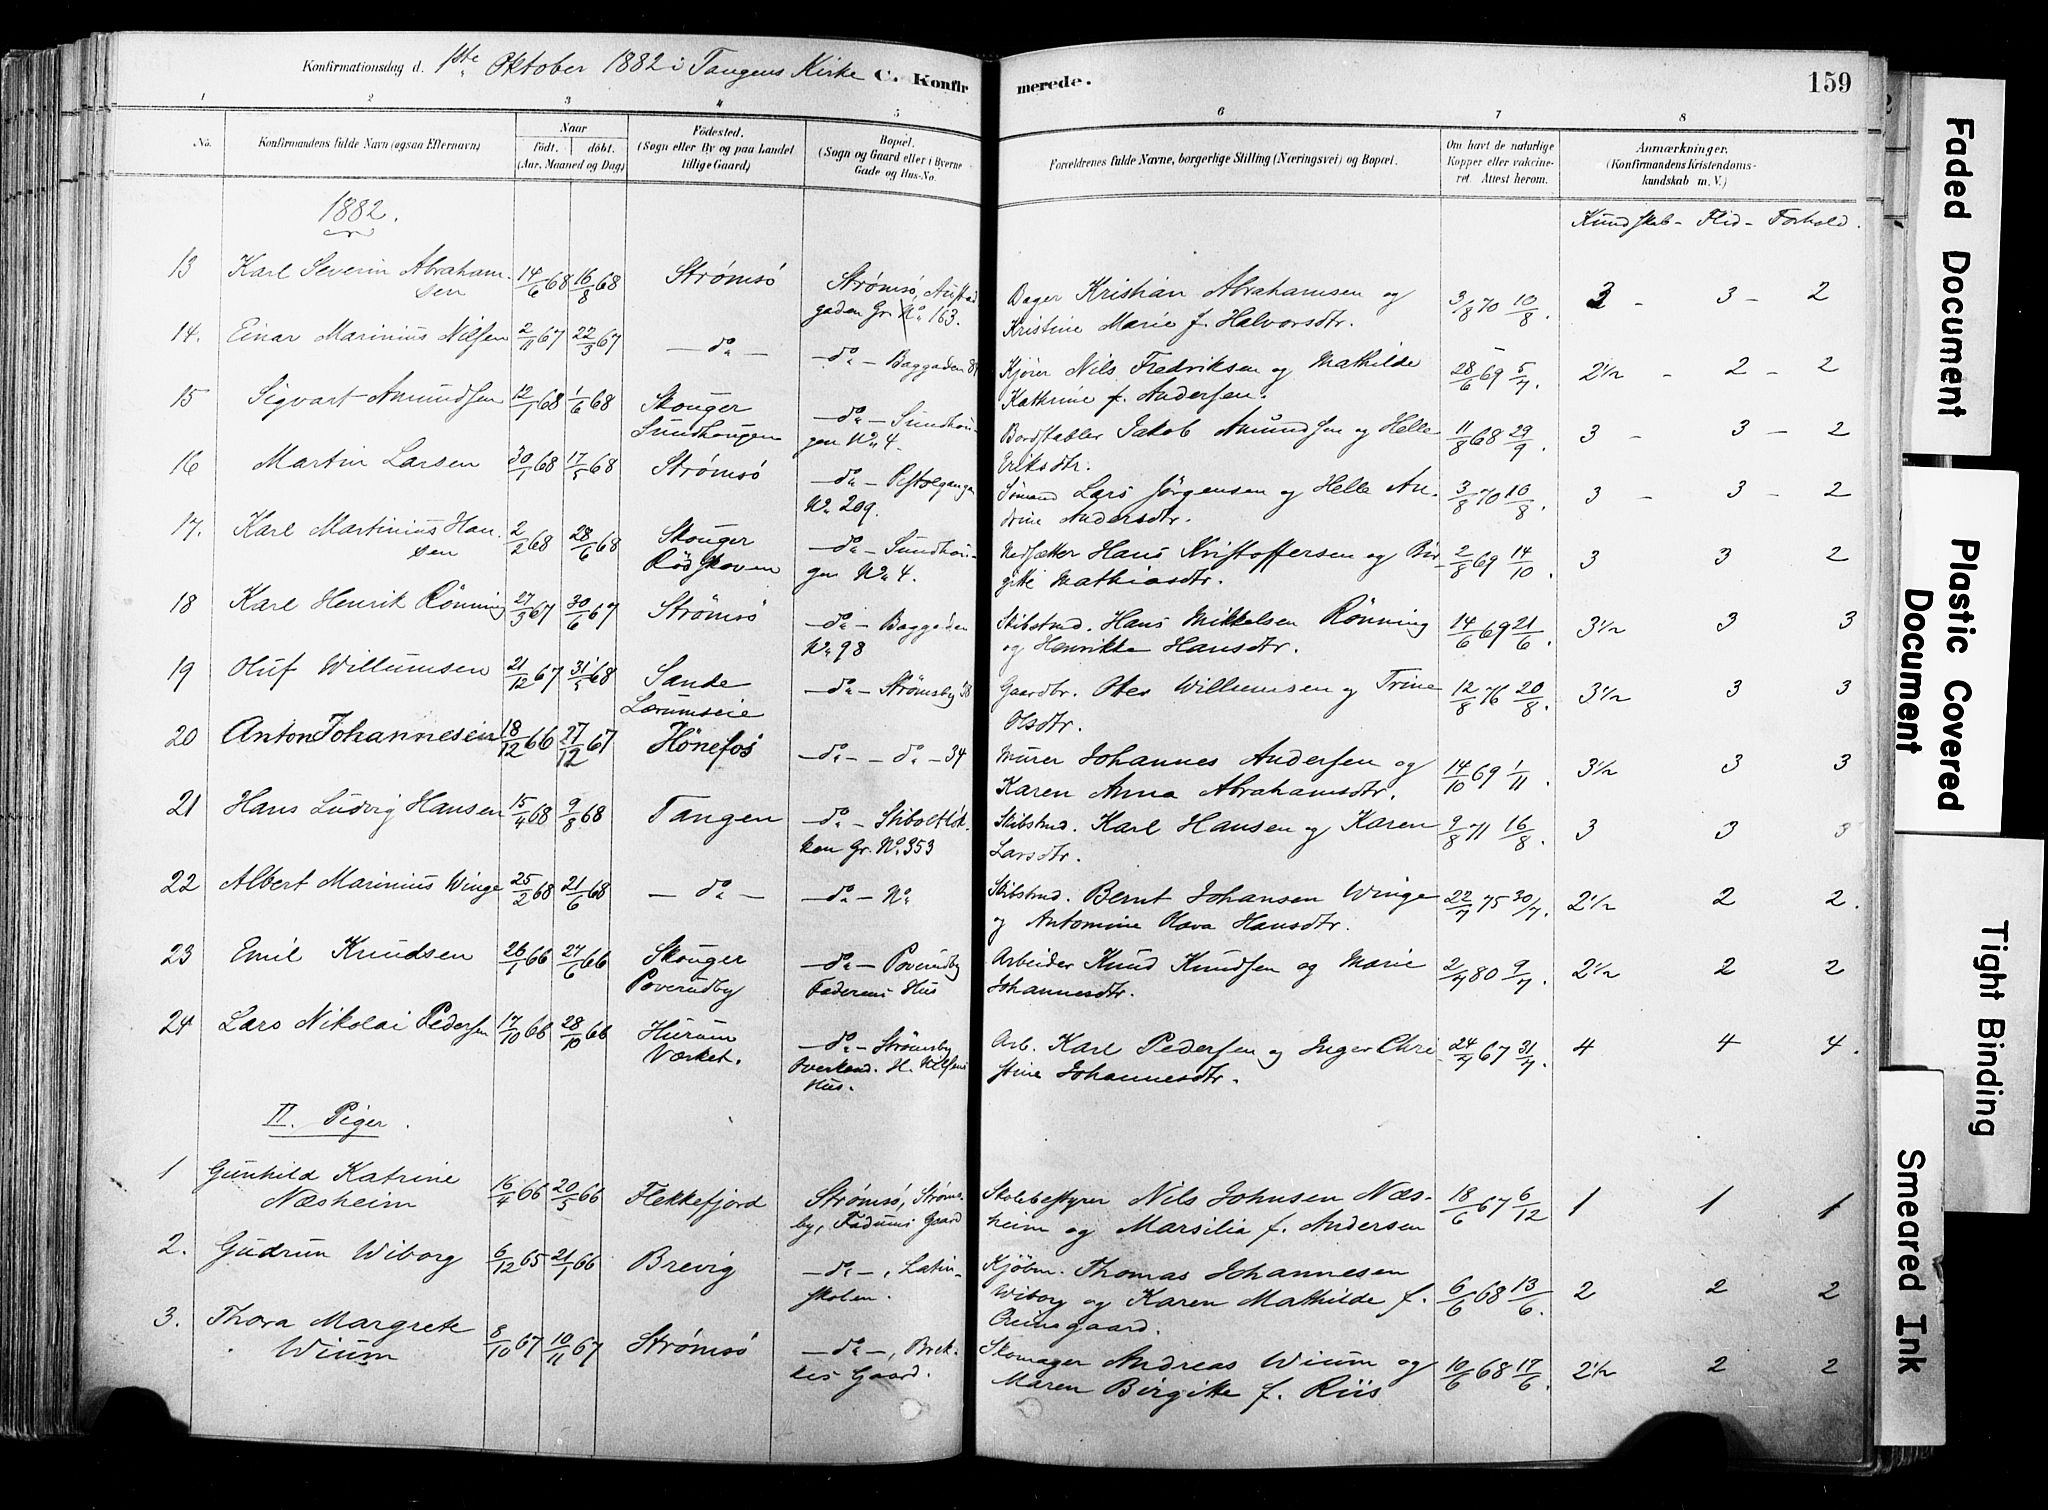 Konfirmationsdag d. 1ste Oktober 1882 i Tangens Kirke C. Konfir merede. 159
1 2 3 4 5 6 7 8
No. Konfirmandens fulde Navn (ogsaa Efternavn) Naar født. døbt. (Aar, Maaned og Dag) Fødested. (Sogn eller By og paa Landet tillige Gaard) Bopæl. (Sogn og Gaard eller i Byerne Gade og Hus-No. Forældrenes fulde Navne, borgerlige Stilling (Næringsvei) og Bopæl. Om havt de naturlige Kopper eller vakcineret. Attest herom. Anmærkninger. (Konfirmandens Kristendomskundskab m. V.)
1882.
Kundskab - Flid - Forhold.
13 Karl Severin Abraham- 14/6 68 16/8 68 Strømsø Strømsø, Bager Kristian Abrahamsen og 3/8 70 10/8. 3 - 3 - 2
sen gaden Gr. No 163. Kristine Marie f. Halvorsdtr.
14. Einar Marinius Nilsen 2/11 67 22/3 67 - do - - do - Baggaden Kjører Nils Fredriksen og Mathilde 28/6 69 5/7. 2 1/2 - 2 - 2
Kathrine f. Andersen.
15 Sigvart Amundsen 12/1 68 1/6 68 Skouger - do - Sundhou- Bordstabler Jakob Amundsen og Helle 11/8 68 29/9. 3 - 3 - 2
Sundhougen gen No 4. Eriksdtr.
16 Martin Larsen 30/1 68 17/5 68 Strømsø - do - Sømand Lars Jørgensen og Helle An- 3/8 70 10/8. 3 - 3 - 2
No 209. drine Andersdtr.
17. Karl Martinius Han- 2/2 68 28/6 68 Skouger - do - Sundhou- Hans Kristoffersen og Bir- 2/8 69 14/10. 3 3 2
sen Rødskoven gen No 4. gitte Mathiasdtr.
18 Karl Henrik Rønning 27/3 67 30/6 67 Strømsø - do - Baggaden Skibstmd. Hans Mikkelsen Rønning 14/6 69 21/6. 3 1/2 3 3
No 98 og Henrikke Hansdtr.
19 Oluf Willumsen 21/12 67 31/5 68 Sande - do - Strømsby 38 Gaardbr. Willumsen og Trine 12/8 76 20/8. 3 1/2 3 3
Lørumseie Olsdtr.
20 Anton Johannesen 18/12 66 27/12 67 Hønefos - do - - do - 34 Murer Johannes Andersen og 14/10 69 1/11. 3 1/2 3 3
Karen Anna Abrahamsdtr.
21 Hans Ludvig Hansen 15/4 68 9/8 68 Tangen - do - Stiboltløk- Skibstmd. Karl Hansen og Karen 9/8 71 16/8. 3 3 3
ken Gr. No. 353 Larsdtr.
22 Albert Marinius Winge 25/2 68 21/6 68 - do - - do - No Skibstmd. Bernt Johansen Winge 22/7 75 30/7. 2 1/2 2 2.
og Antomine Hansdtr.
23 Emil Knudsen 26/1 66 24/6 66 Skouger - do - Poverudby Arbeider Knud Knudsen og Marie 2/7 80 9/7. 2 1/2 2 2
Poverudby Faderens Hus Johannesdtr.
24 Lars Nikolai Pedersen 17/10 66 28/10 66 Hurum - do - Strømsby Arb. Karl Pedersen og Inger Chri- 24/7 67 31/7. 4 4 4.
Værket. H. Nilsens stine Johannesdtr.
Hus.
II. Piger.
1 Gunhild Katrine 16/4 66 20/5 66 Flekkefjord Strømsø, Strøms- Skolebestyrer Nils Johnsen Næs- 18/6 67 6/12 1 1 1
Næsheim by, Fadums Gaard heim og Marsilia f. Andersen
2. Gudrun Wiborg 6/12 65 21/1 66 Brevig - do -, Latin- Kjøbm. Thomas Johannesen 6/6 68 13/6. 2 2 2
skolen. Wiborg og Karen Mathilde f.
Ørensgaard.
3. Thora Margrete 8/10 67 10/11 67 Strømsø - do -, Brek- Skomager Andreas Wium og 10/6 68 17/6. 2 1/2 2 2
Wium kes Gaard. Maren Birgitte f. Riis
Faded Document
Plastic Covered Document
Tight Binding
Smeared Ink